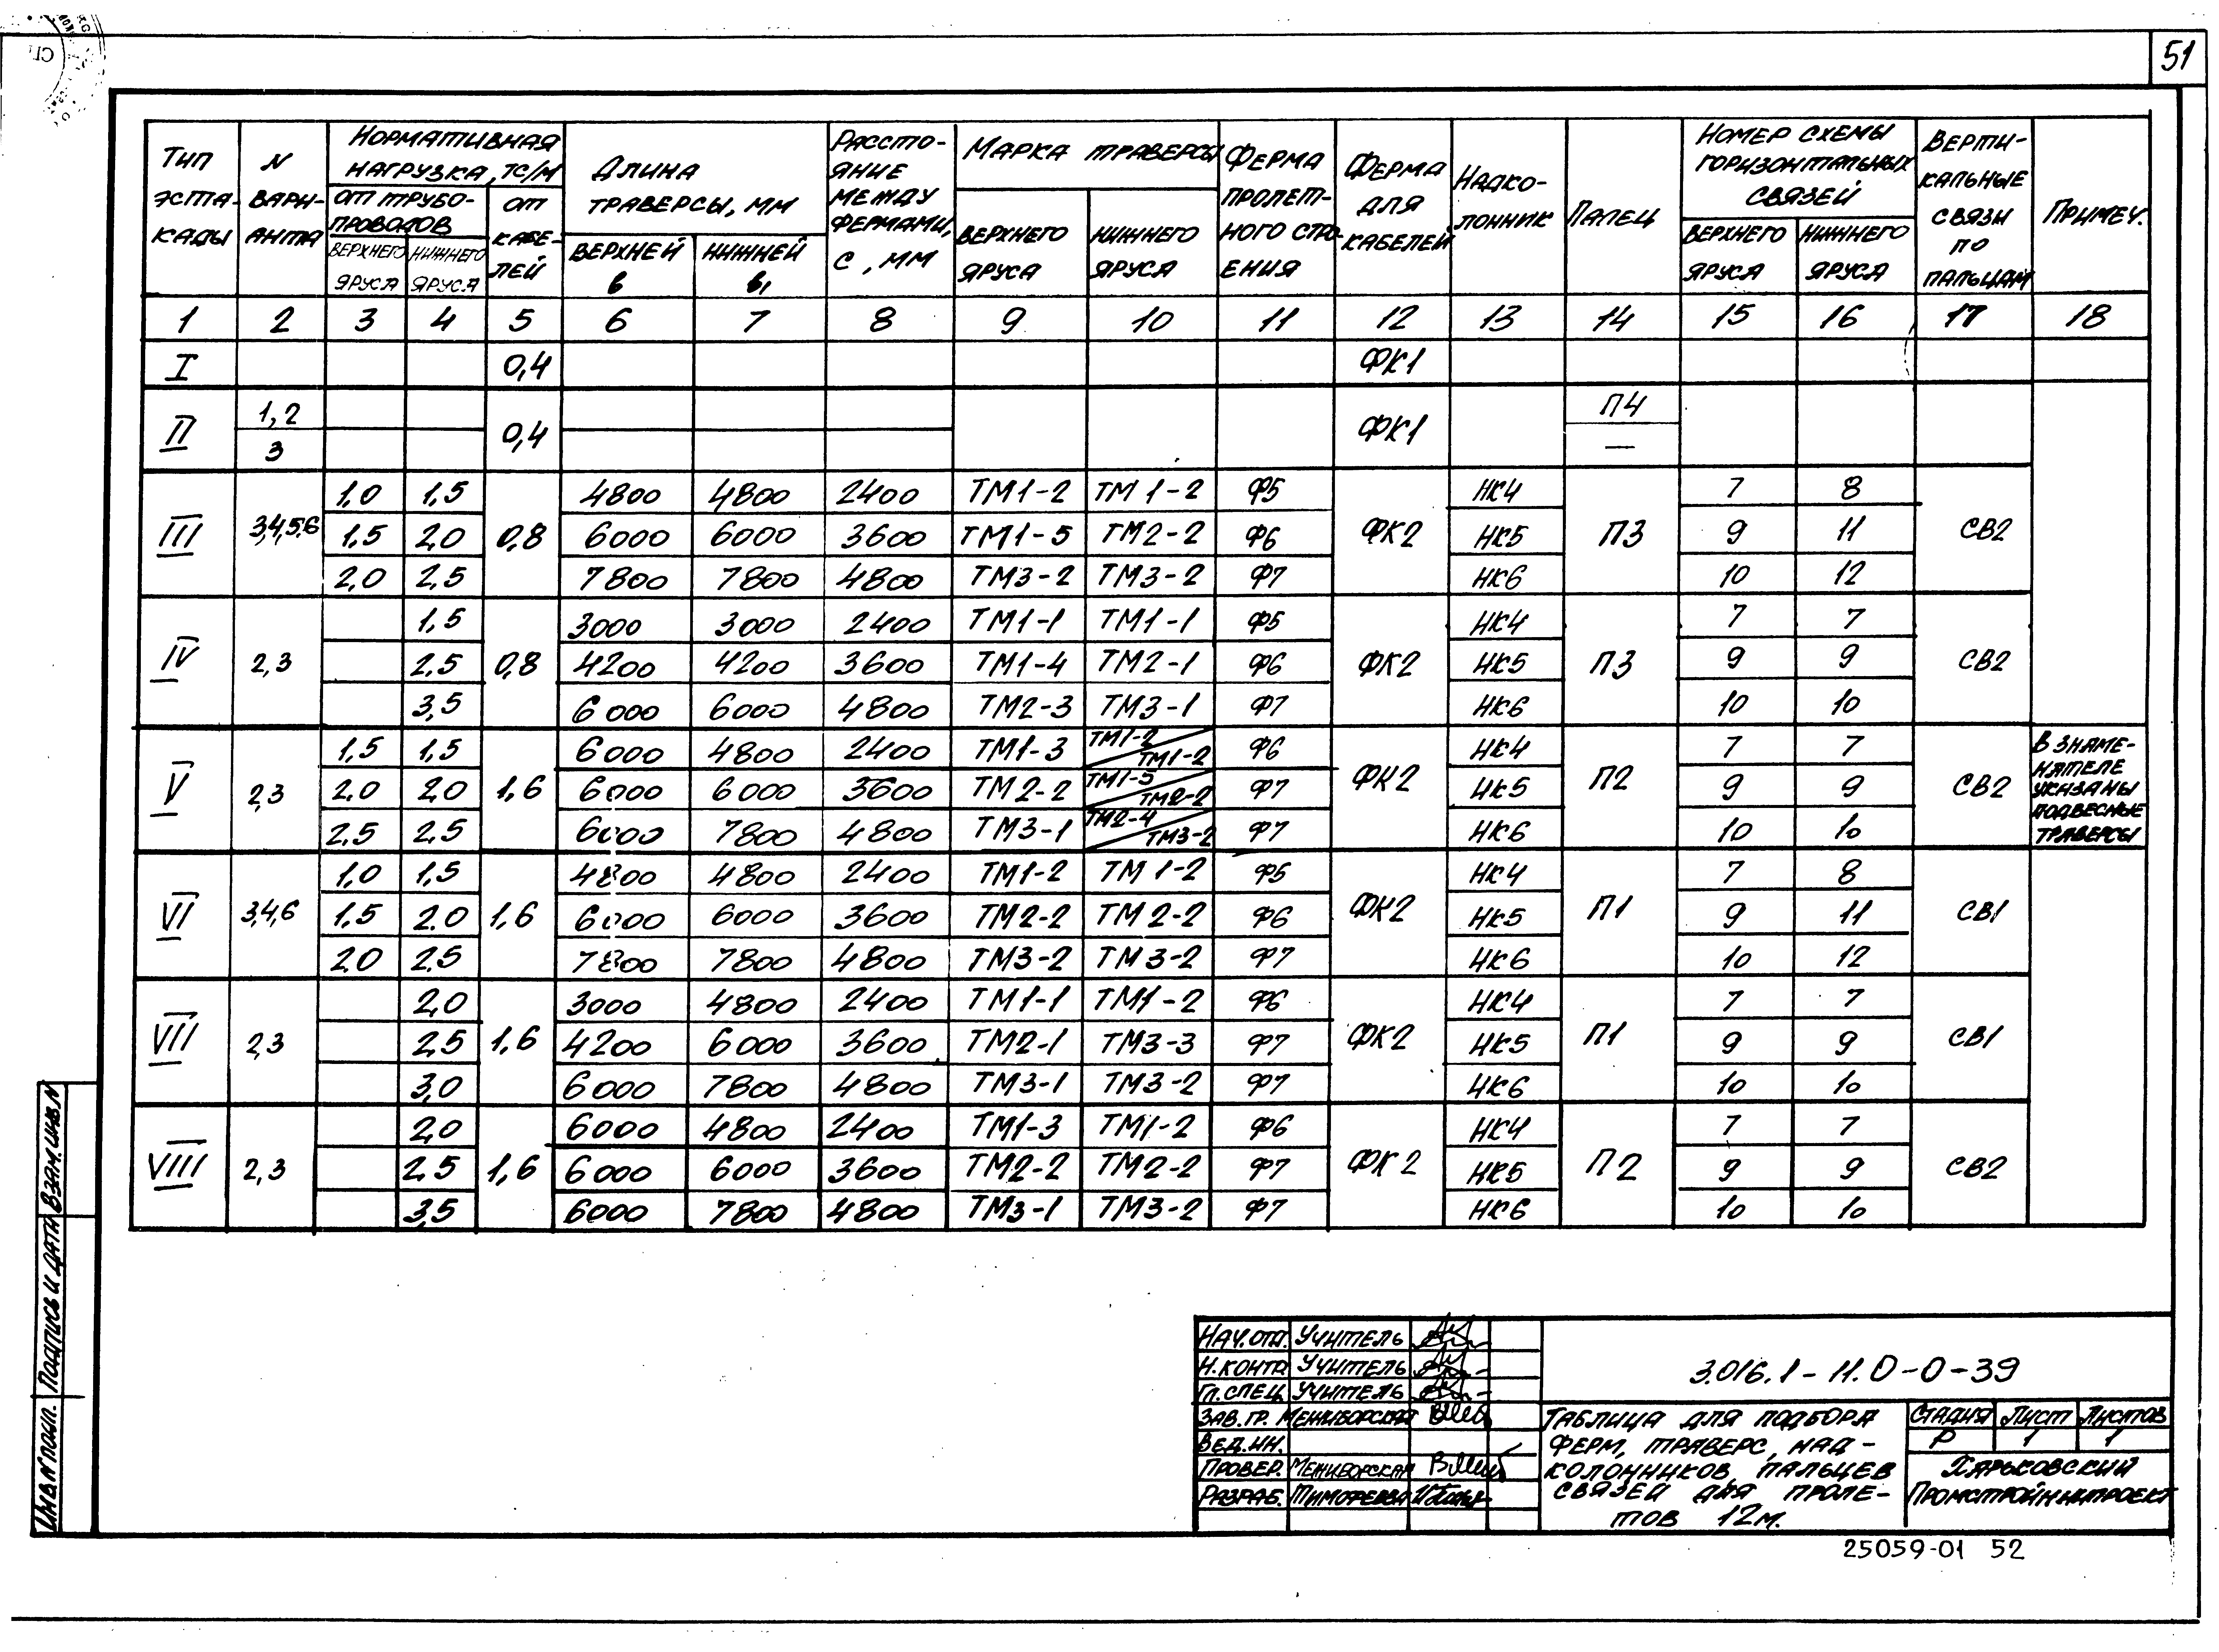 51
Тип эстакады | N варианта | Нормативная нагрузка, тс/м | Длина траверсы, мм | Расстояние между фермами, с, мм | Марка траверсы | Ферма пролетного строения | Ферма для кабелей | Надколонник | Палец | Номер схемы горизонтальных связей | Вертикальные связи по пальцам | Примеч.
от трубопроводов | от кабелей | верхней в | нижней в1 | верхнего яруса | нижнего яруса | верхнего яруса | нижнего яруса
верхнего яруса | нижнего яруса
1 2 3 4 5 6 7 8 9 10 11 12 13 14 15 16 17 18
I 0,4 ФК1
II 1,2 0,4 ФК1 П4
3 —
III 3,4,5,6 1,0 1,5 0,8 4800 4800 2400 ТМ1-2 ТМ1-2 Ф5 ФК2 НК4 П3 7 8 СВ2
1,5 2,0 6000 6000 3600 ТМ1-5 ТМ2-2 Ф6 НК5 9 11
2,0 2,5 7800 7800 4800 ТМ3-2 ТМ3-2 Ф7 НК6 10 12
IV 2,3 1,5 0,8 3000 3000 2400 ТМ1-1 ТМ1-1 Ф5 ФК2 НК4 П3 7 7 СВ2
2,5 4200 4200 3600 ТМ1-4 ТМ2-1 Ф6 НК5 9 9
3,5 6000 6000 4800 ТМ2-3 ТМ3-1 Ф7 НК6 10 10
V 2,3 1,5 1,5 1,6 6000 4800 2400 ТМ1-3 ТМ1-2/ТМ1-2 Ф6 ФК2 НК4 П2 7 7 СВ2 В знаменателе указаны подвесные траверсы
2,0 2,0 6000 6000 3600 ТМ2-2 ТМ1-5/ТМ2-2 Ф7 НК5 9 9
2,5 2,5 6000 7800 4800 ТМ3-1 ТМ2-4/ТМ3-2 Ф7 НК6 10 10
VI 3,4,6 1,0 1,5 1,6 4800 4800 2400 ТМ1-2 ТМ1-2 Ф5 ФК2 НК4 П1 7 8 СВ1
1,5 2,0 6000 6000 3600 ТМ2-2 ТМ2-2 Ф6 НК5 9 11
2,0 2,5 7800 7800 4800 ТМ3-2 ТМ3-2 Ф7 НК6 10 12
VII 2,3 2,0 1,6 3000 4800 2400 ТМ1-1 ТМ1-2 Ф6 ФК2 НК4 П1 7 7 СВ1
2,5 4200 6000 3600 ТМ2-1 ТМ3-3 Ф7 НК5 9 9
3,0 6000 7800 4800 ТМ3-1 ТМ3-2 Ф7 НК6 10 10
VIII 2,3 2,0 1,6 6000 4800 2400 ТМ1-3 ТМ1-2 Ф6 ФК2 НК4 П2 7 7 СВ2
2,5 6000 6000 3600 ТМ2-2 ТМ2-2 Ф7 НК5 9 9
3,5 6000 7800 4800 ТМ3-1 ТМ3-2 Ф7 НК6 10 10
Инв.N подл. Подпись и дата Взам.инв.N
Нач.отд. Учитель
Н.контр Учитель
Гл.спец. Учитель
Зав.гр. Межиборская
Вед.ин.
Провер. Межиборская
Разраб. Тимофеева
3.016.1-11.0-0-39
Таблица для подбора
ферм, траверс, над-
колонников, пальцев
связей для проле-
тов 12м.
Стадия Лист Листов
Р 1 1
Харьковский
Промстройниипроект
25059-01 52